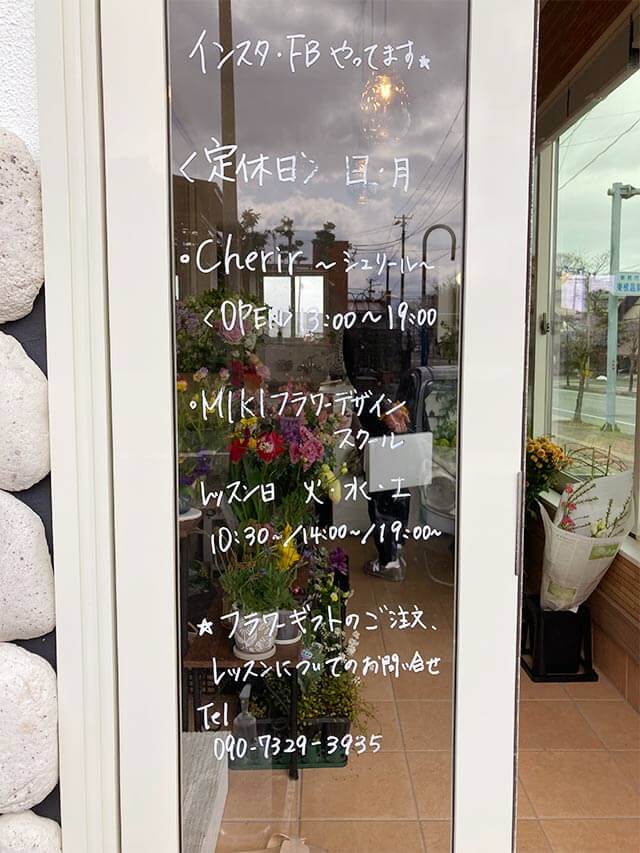 インスタ・FBやってます☆
〈定休日〉 日・月
・Cherir ～シュリール～
〈OPEN〉13:00～19:00
・MIKIフラワーデザイン
スクール
レッスン日 火・水・土
10:30～/14:00～/19:00～
☆フラワーギフトのご注文、
レッスンについてのお問い合せ
Tel
090-7329-3935